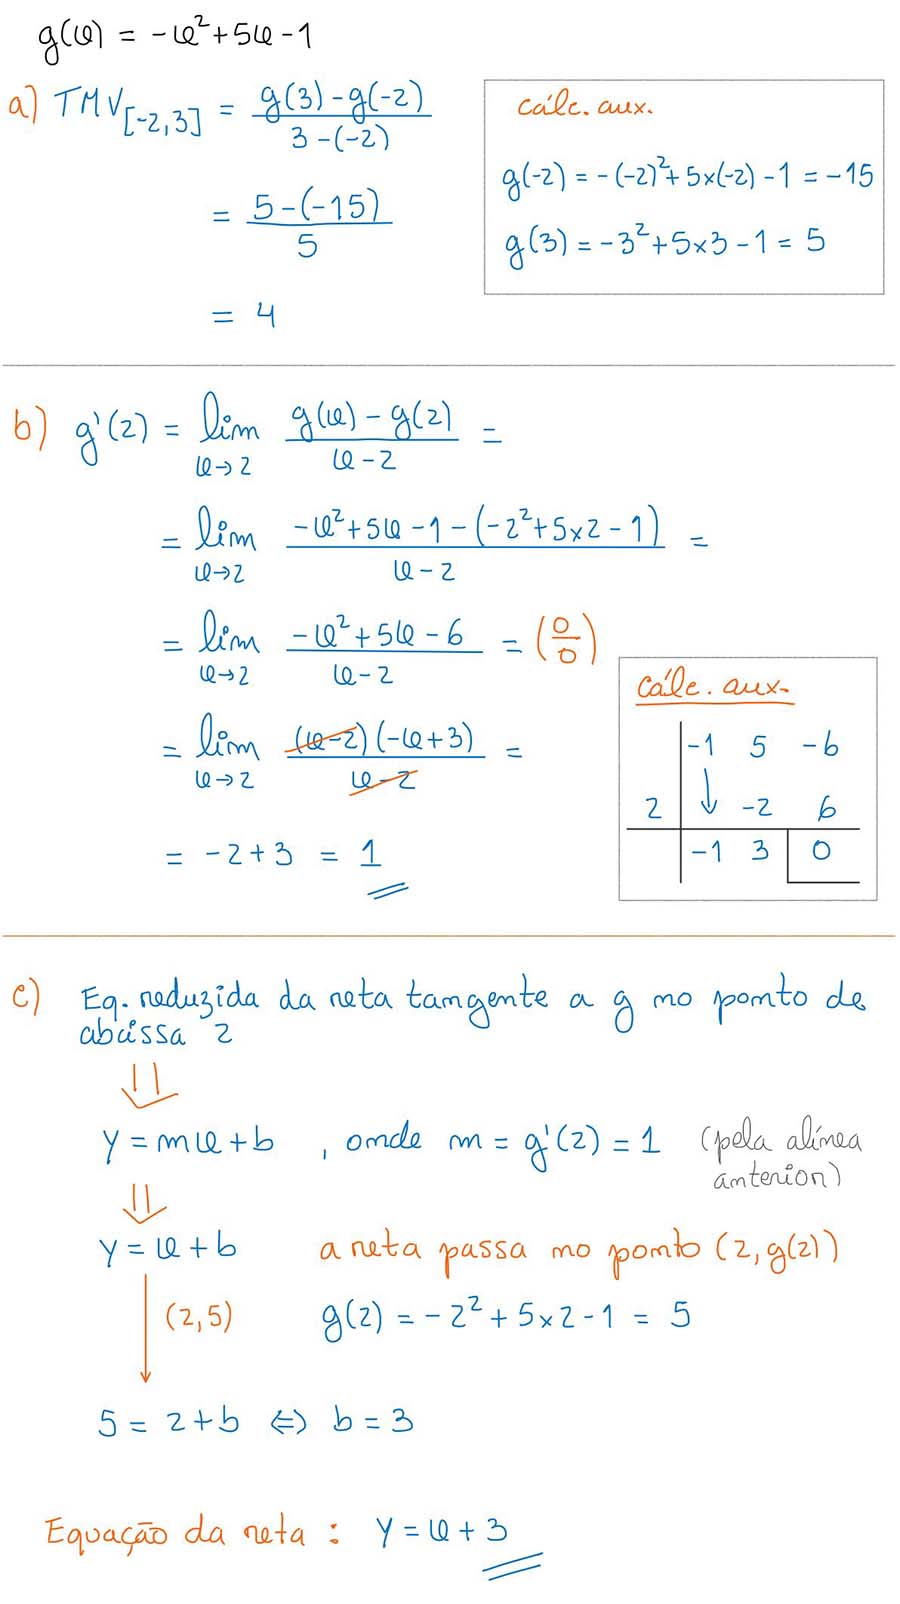 g(x) = -x²+5x-1
a) TMV[-2,3] = (g(3)-g(-2))/(3-(-2))
= (5-(-15))/5
= 4
cálc. aux.
g(-2) = -(-2)²+5×(-2)-1 = -15
g(3) = -3²+5×3-1 = 5
b) g'(2) = lim x→2 (g(x)-g(2))/(x-2) =
= lim x→2 (-x²+5x-1-(-2²+5×2-1))/(x-2) =
= lim x→2 (-x²+5x-6)/(x-2) = (0/0)
= lim x→2 ((x-2)(-x+3))/(x-2) =
= -2+3 = 1
cálc. aux.
-1 5 -6
2 ↓ -2 6
-1 3 0
c) Eq. reduzida da reta tangente a g no ponto de
abcissa 2
⇓
y = mx+b , onde m = g'(2) = 1 (pela alínea
anterior)
⇓
y = x+b a reta passa no ponto (2, g(2))
(2,5) g(2) = -2²+5×2-1 = 5
5 = 2+b ⇔ b = 3
Equação da reta : y = x+3